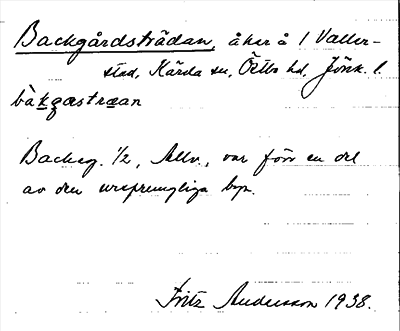 Backgårdsträdan, åker å 1 Valler-
stad, Kärda sn, Östbo hd, Jönk. l.
bàkgæstræan
Backeg. 1/2, Allv., var förr en del
av den ursprungliga byn.
Fritz Andersson 1938.